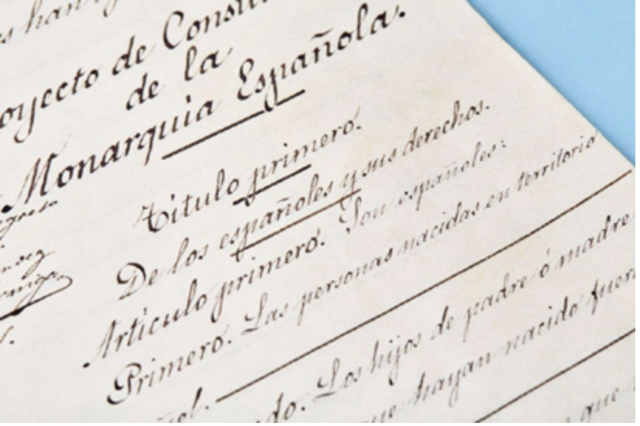 es han
oyecto de Consti
de la
Monarquia Española.
Título primero.
De los españoles y sus derechos.
Artículo primero. Son españoles:
Primero. Las personas nacidas en territorio
ñol.
do. Los hijos de padre ó madre
ue hayan nacido fuer
que